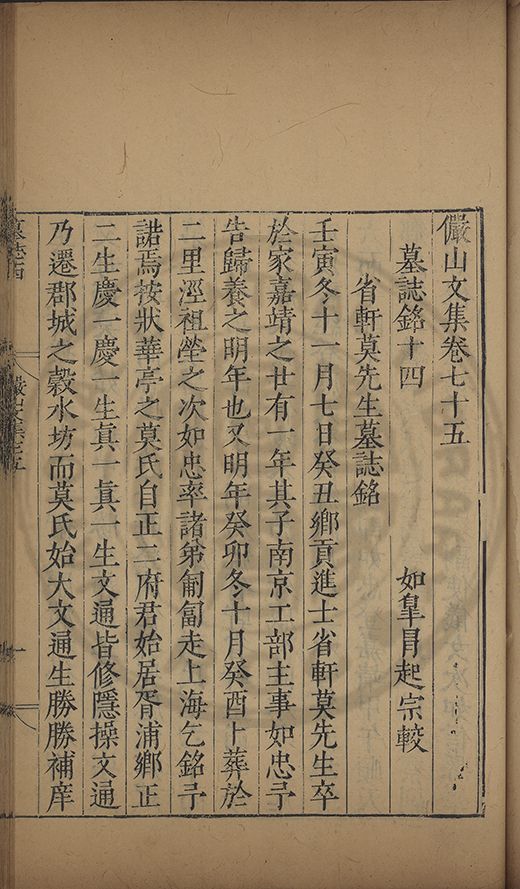 儼山文集卷七十五
墓誌銘十四
如臯冒起宗較
省軒莫先生墓誌銘
壬寅冬十一月七日癸丑鄉貢進士省軒莫先生卒
於家嘉靖之廿有一年其子南京工部主事如忠予
告歸養之明年也又明年癸卯冬十月癸酉卜葬於
二里涇祖塋之次如忠率諸弟
走上海乞銘予
諾焉按狀華亭之莫氏自正二府君始居胥浦鄉正
二生慶一慶一生眞一眞一生文通皆修隱操文通
乃遷郡城之榖水坊而莫氏始大文通生勝勝補庠